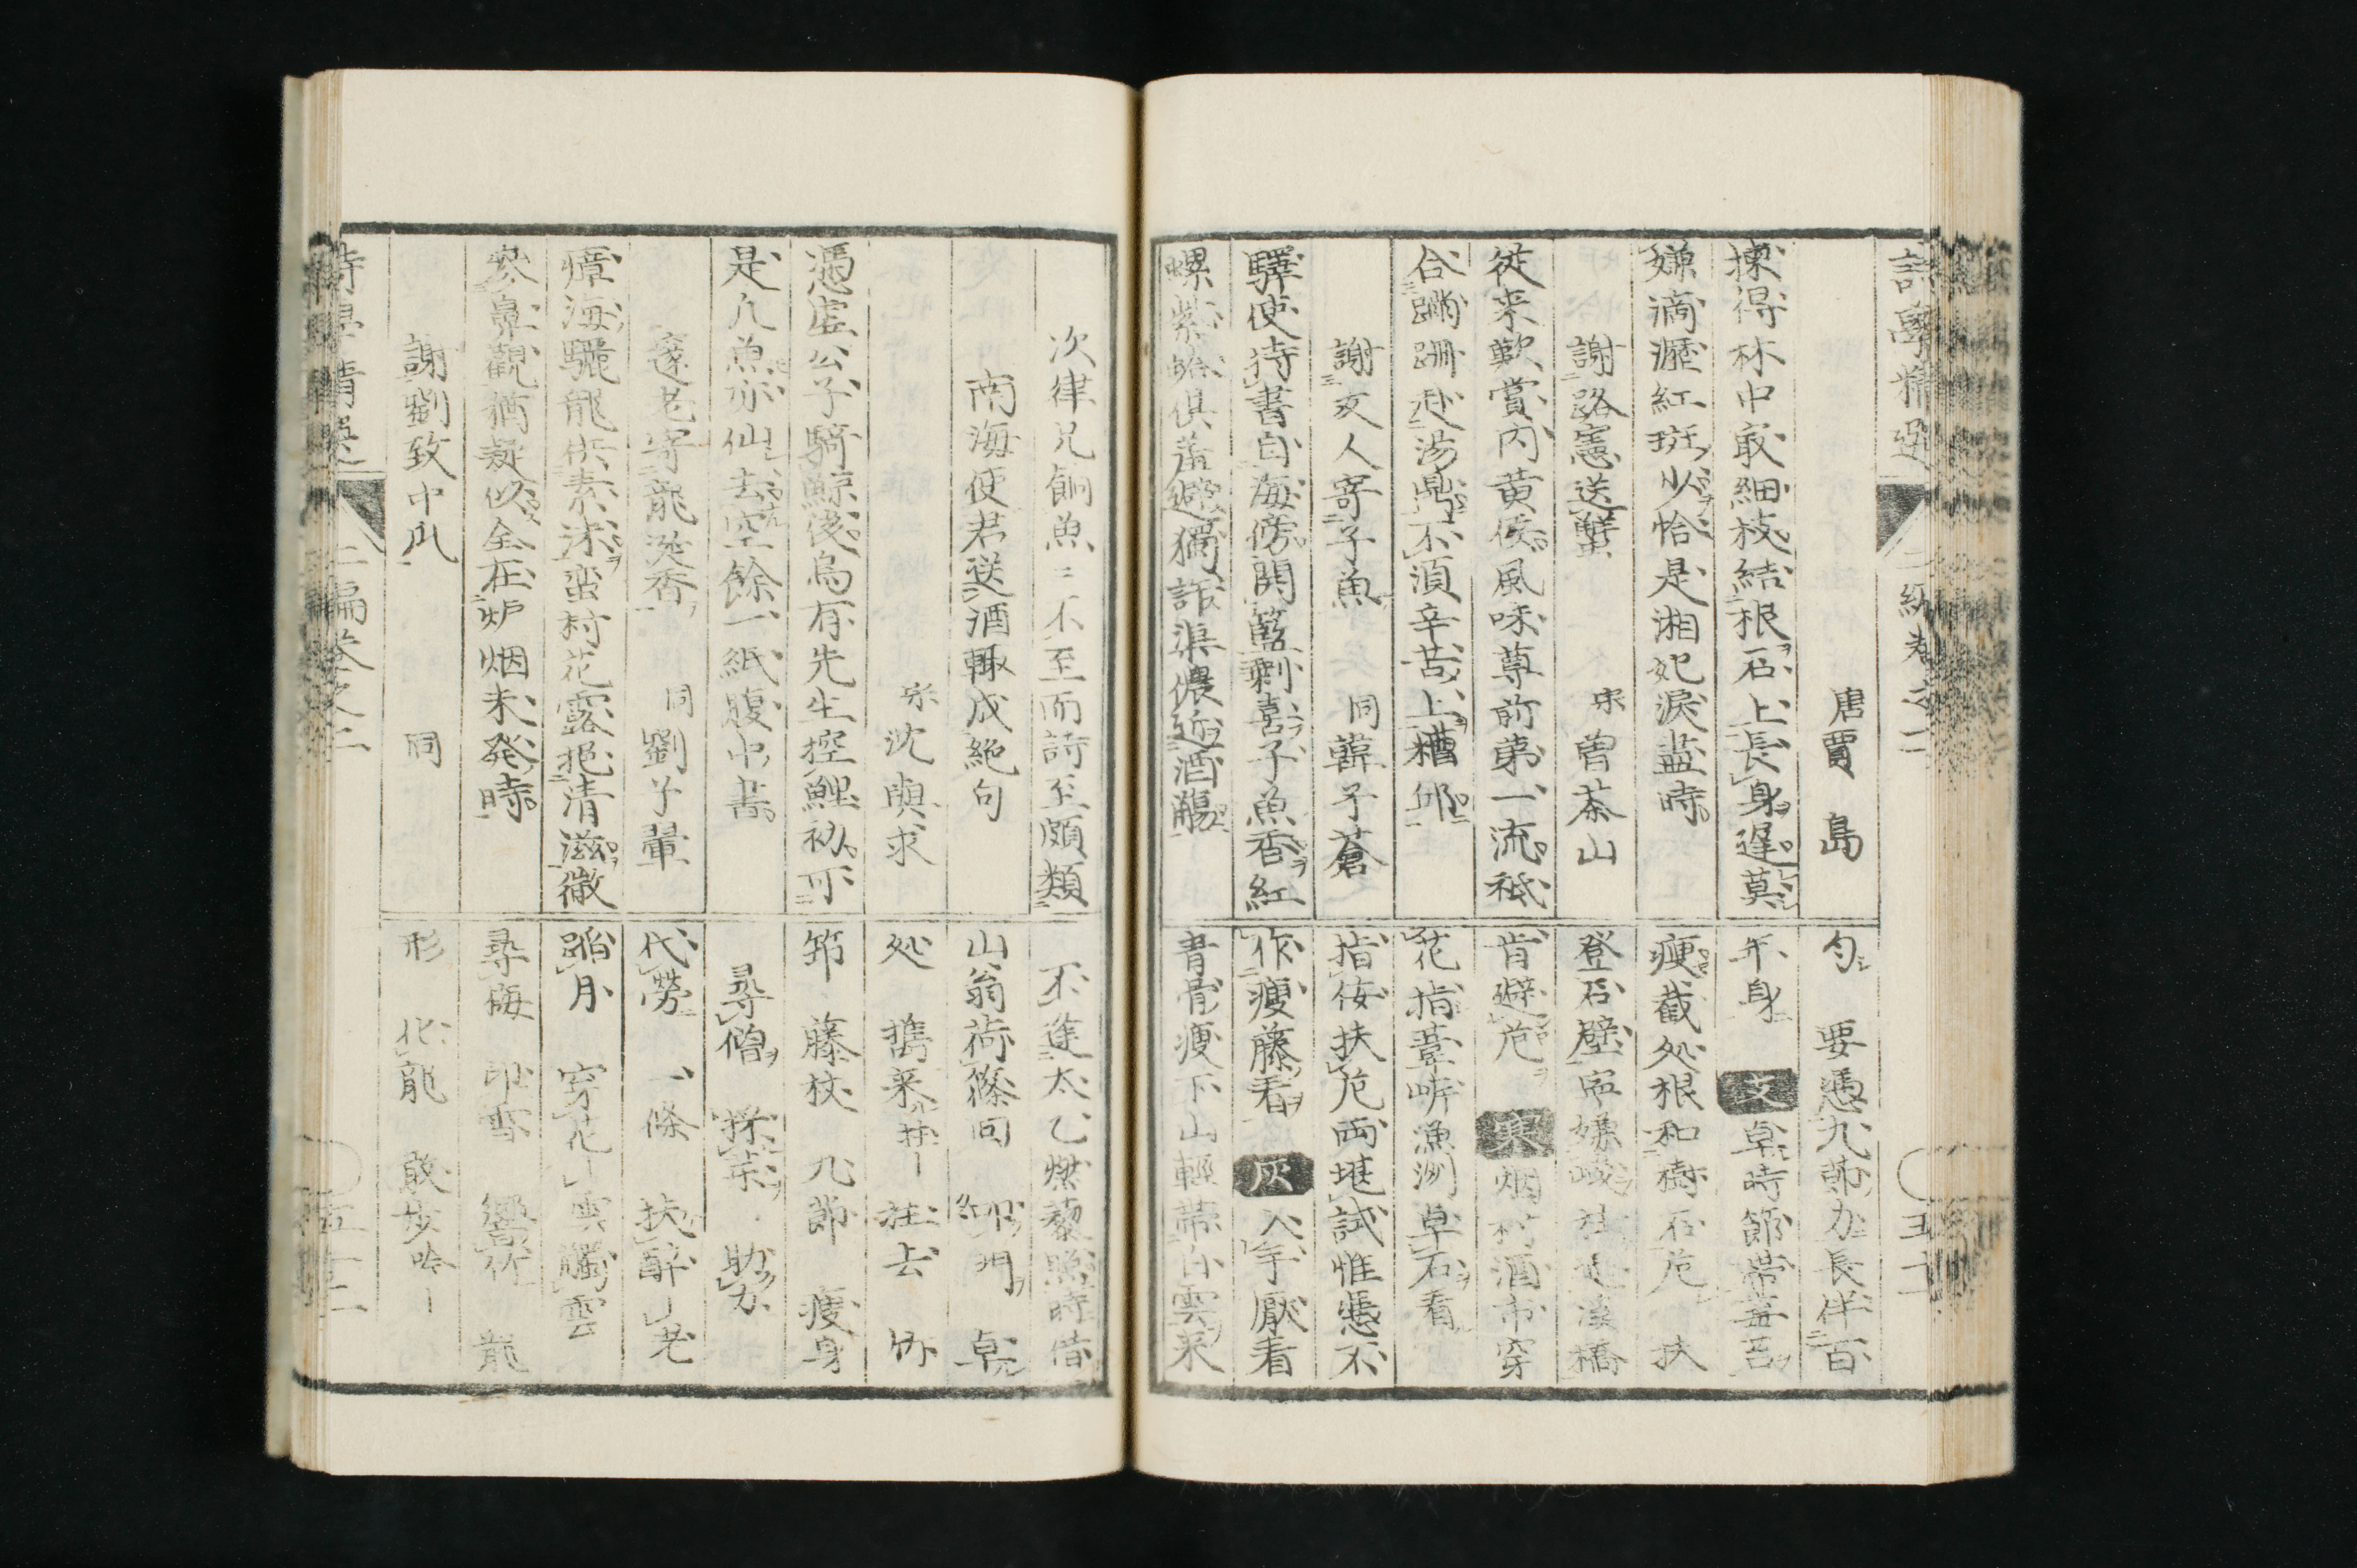 唐賈島
揀得林中最細枝結根石上長身遲莫
嫌滴瀝紅斑少恰是湘妃淚盡時
謝路憲送蟹
宋曽茶山
従来歎賞内黄侯風味尊前第一流祗
合蹒跚赴湯鼎不須辛苦上糟邱
謝文人寄子魚
同韓子蒼
驛使持書自海傍開籃剩喜子魚香紅
螺紫蛤俱羞避獨許渠儂近酒觴
勺 要憑九節力長伴百
年身 文 卓時節帶蓋苔
痩截処根和樹石危 扶
登石壁寧嫌峻
肯避危 寒 烟村酒市穿
花指葦岸漁洲卓石看
指佞扶危両堪試惟愁不
作痩藤看 灰 入手厭看
青骨痩下山輕帶白雲来
次律兄餉魚魚不至而詩至頗類
南海使君送酒輒成絶句
宋沈與求
憑虚公子騎鯨後烏有先生控鯉初可
是凡魚亦仙去空餘一紙腹中書
邃老寄龍涎香
同劉子翬
瘴海驪龍供素沫蛮村花露挹清滋微
参鼻観猶疑似全在炉烟未発時
謝劉致中瓜
同
不逢太乙燃藜照時借
山翁荷篠回 卓
処 携来 拄去
筇 藤杖 九節 痩身
尋僧 採茶 助力
代労 一條 扶酔 老
蹈月 穿花 雲 觸雲
尋梅 印雪 龍
形 化龍 散歩吟
二編巻之二
五十二